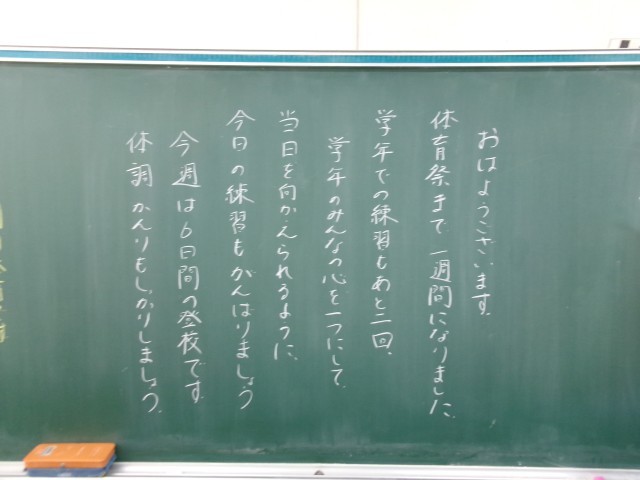 おはようございます。
体育祭まで一週間になりました。
学年での練習もあと二回、
学年のみんなの心を一つにして
当日を向かえられるように、
今日の練習もがんばりましょう
今週は6日間の登校です
体調かんりもしっかりしましょう。